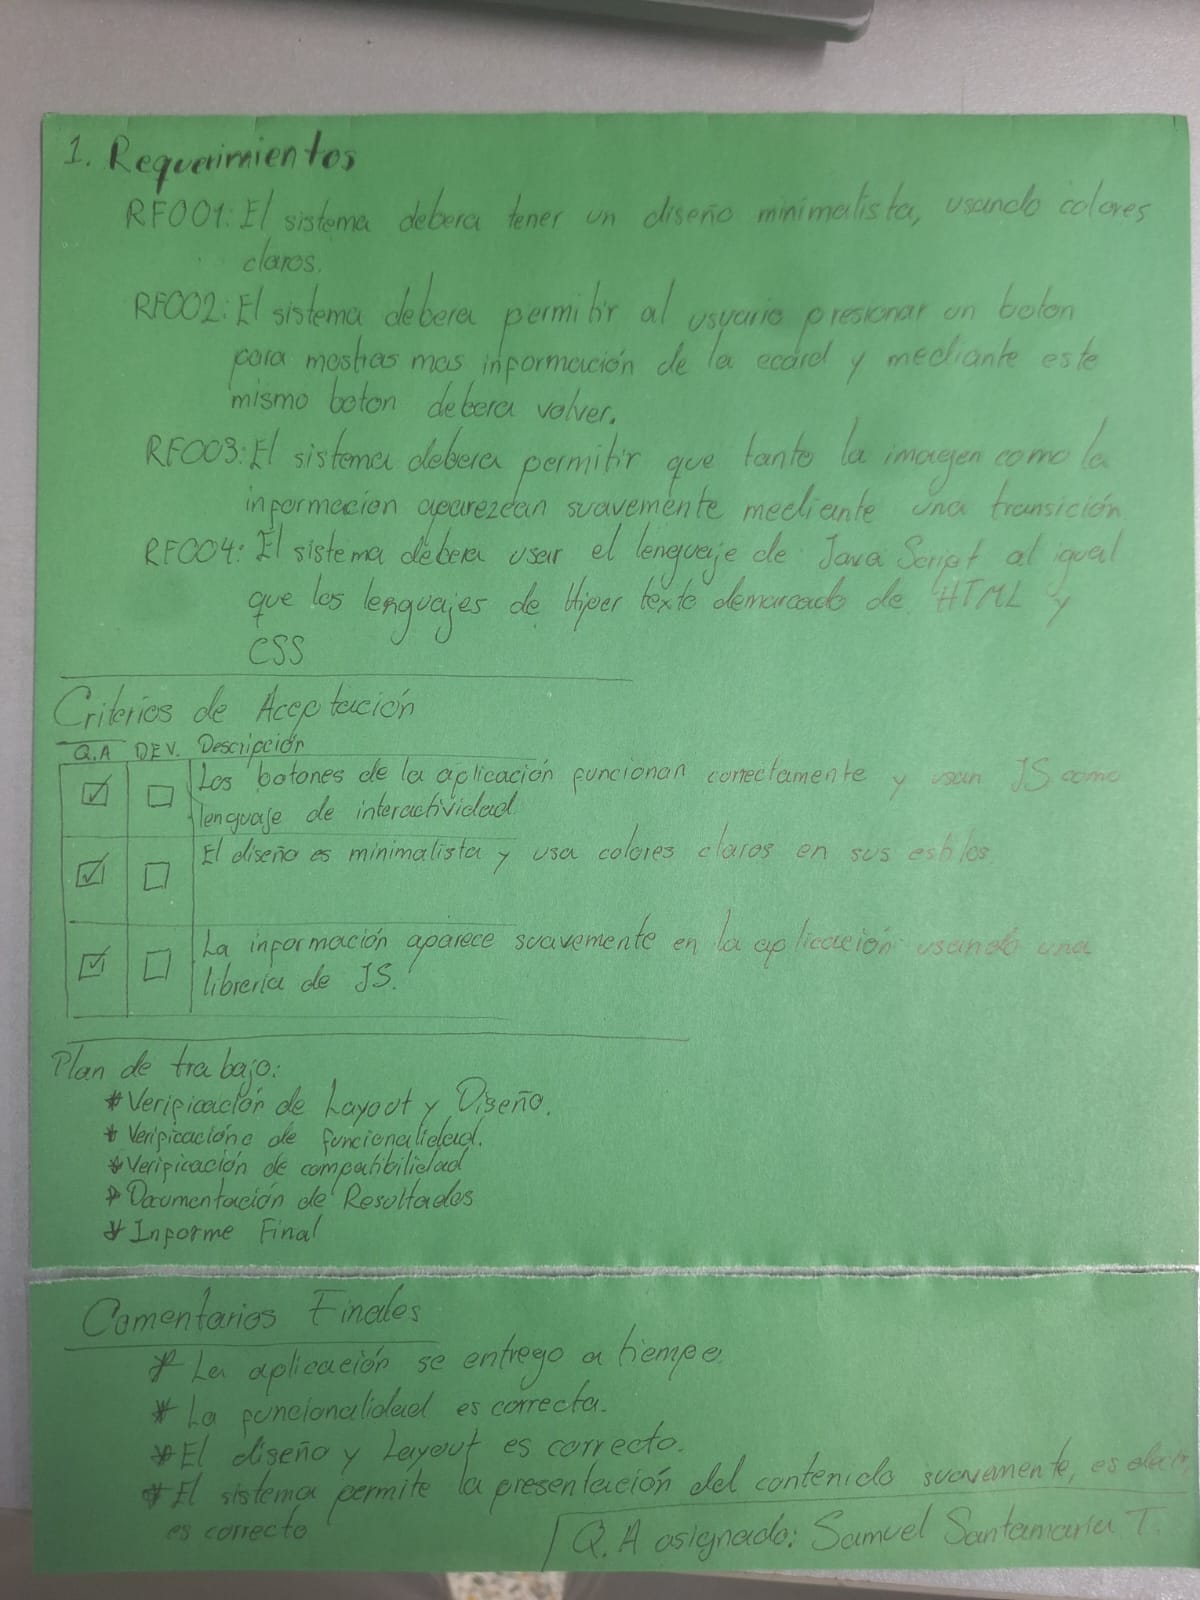 1. Requerimientos
RF001: El sistema debera tener un diseño minimalista, usando colores
claros.
RF002: El sistema debera permitir al usuario presionar un boton
para mostras mas información de la ecard y mediante este
mismo boton debera volver.
RF003: El sistema debera permitir que tanto la imagen como la
informacion aparezcan suavemente mediante una transición
RF004: El sistema debera usar el lenguaje de Java Script al igual
que los lenguajes de Hiper texto demarcado de HTML y
CSS
Criterios de Aceptación
Q.A DEV. Descripción
Los botones de la aplicación funcionan correctamente y usan JS como
lenguaje de interactividad.
El diseño es minimalista y usa colores claros en sus estilos.
La información aparece suavemente en la aplicación usando una
libreria de JS.
Plan de trabajo:
* Verificación de Layout y Diseño.
* Verificacióna de funcionalidad.
* Verificación de compatibilidad
* Documentación de Resultados
* Informe Final
Comentarios Finales
* La aplicación se entrego a tiempo.
* La funcionalidad es correcta.
* El diseño y Layout es correcto.
* El sistema permite la presentación del contenido suavemente, es decir,
es correcto
Q.A asignado: Samuel Santamaria T.